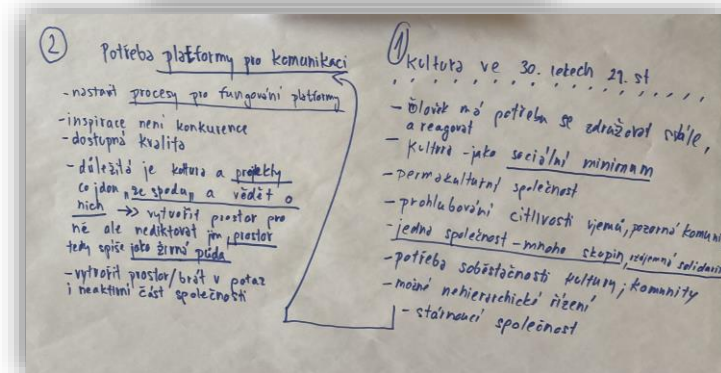 ②
Potřeba platformy pro komunikaci
- nastavit procesy pro fungování platformy
- inspirace není konkurence
- dostupná kvalita
- důležitá je kultura a projekty
co jdou „ze spodu„ a vědět o
nich →> vytvořit prostor pro
ně ale nediktovat jim, prostor
tedy spíše jako živná půda
- vytvořit prostor/brát v potaz
i neaktivní část společnosti
①
Kultura ve 30. letech 21. st
- člověk má potřebu se združovat stále,
a reagovat
- kultura - jako sociální minimum
- permakulturní společnost
- prohlubování citlivosti vjemů, pozorná komuni
- jedna společnost - mnoho skupin, vzájemná solidari
- potřeba soběstačnosti kultury; komunity
- možné nehierarchické řízení
- stárnoucí společnost